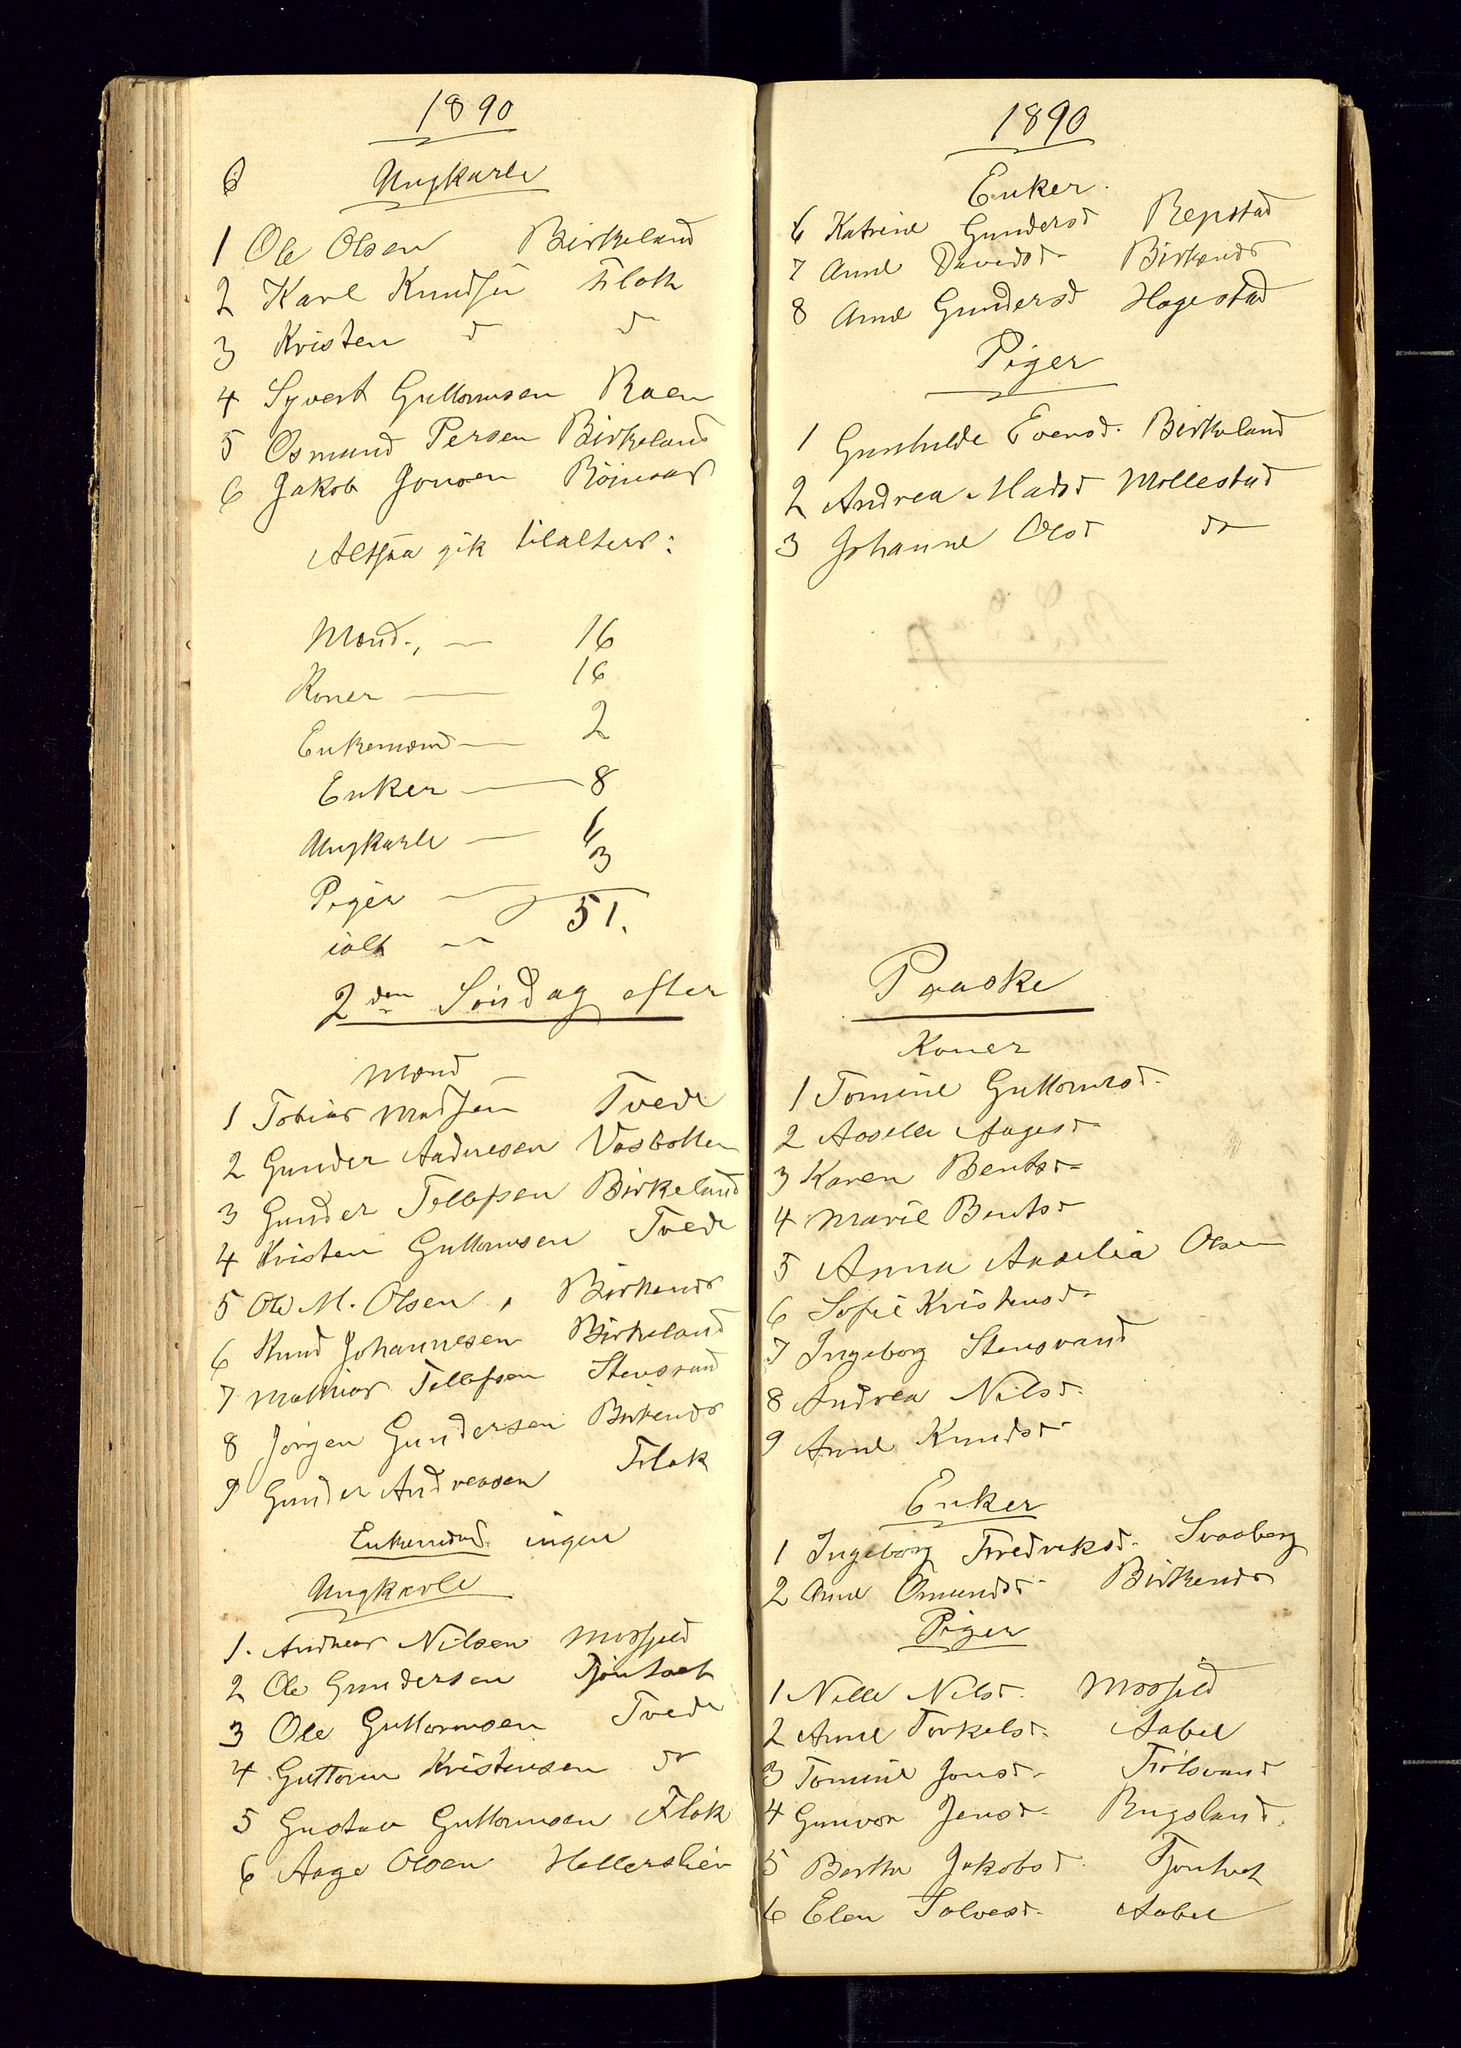 1890
6 Ungkarle
1 Ole Olsen Birkeland
2 Karl Knudsen Flak
3 Kristen d d
4 Syvert Guttormsen Roen
5 Osmund Persen Birkeland
6 Jakob Jonsen
Altsaa gik tilalters:
Mænd., — 16
Koner — 16
Enkemænd — 2
Enker — 8
Ungkarle — 6
Piger — 3
ialt — 51.
2den Søndag efter
Mænd
1 Tobias Madsen Tvede
2 Gunder Andresen Vasbotten
3 Gunder Tellefsen Birkeland
4 Kristen Guttormsen Tvede
5 Ole M. Olsen, Birkends
6 Knud Johannesen Birkeland
7 Mathias Tellefsen Stensvand
8 Jörgen Gundersen Birkends
9 Gunder Andreasen Flak
Enkemænd. ingen
Ungkarle
1. Andreas Nilsen Mosfjeld
2 Ole Gundersen Tjöntvet
3 Ole Guttormsen Tvede
4 Guttorm Kristensen do
5 Gustav Guttormsen Flak
6 Aage Olsen Hellerslien
1890
Enker.
6 Katrine Gundersd Repstad
7 Anne Davidsd Birkends
8 Anne Gundersd Hagestad
Piger
1 Gunhilde Evensd. Birkeland
2 Andrea Madsd Mollestad
3 Johanne Olsd do
Paaske
Koner
1 Tomine Guttormsd.
2 Aaselle Aagesd
3 Karen Bentsd
4 Marie Bentsd
5 Anna Aaselia Olsen
6 Sofie Kristensd
7 Ingeborg Stensvand
8 Andrea Nilsd
9 Anne Knudsd
Enker
1 Ingeborg Fredriksd. Svaaberg
2 Anne Omundsd Birkends
Piger
1 Nille Nilsd. Mosfjeld
2 Anne Torkelsd. Aabel
3 Tomine Jonsd.
4 Gunvor Jensd. Rugsland.
5 Berthe Jakobsd. Tjöntvet
6 Elen Salvesd. Aabel